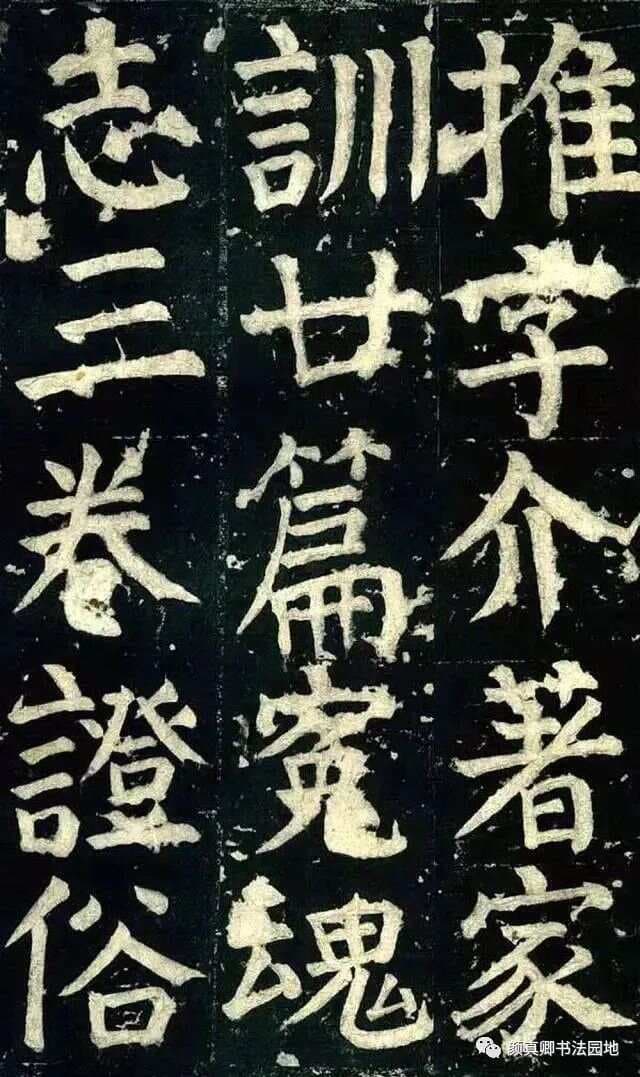 推字介著家
訓廿篇寃魂
志三卷證俗
颜真卿书法园地